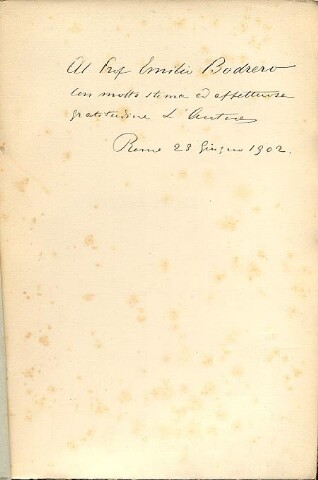 Al Prof Emilio Bodrero
con molta stima ed affettuosa
gratitudine L'Autore
Roma 28 Giugno 1902.